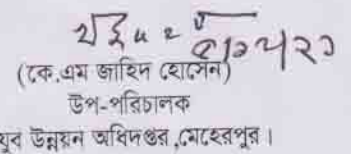 (কে,এম জাহিদ হোসেন)
উপ-পরিচালক
যুব উন্নয়ন অধিদপ্তর,মেহেরপুর।